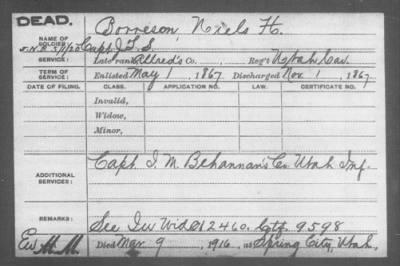 DEAD.
NAME OF SOLDIER: Borreson, Niels H.
Capt J. T. S.
SERVICE: Late rank Allred's Co., Reg't Utah Cav.
TERM OF SERVICE: Enlisted May 1, 1867. Discharged Nov. 1, 1867.
DATE OF FILING. CLASS. APPLICATION NO. LAW. CERTIFICATE NO.
Invalid,
Widow,
Minor,
ADDITIONAL SERVICES: Capt. I. M. Behannan's Co Utah Inf.
REMARKS: See Iw Wid 12460. Ctf. 9598
Died Mar 9, 1916, at Spring City, Utah.